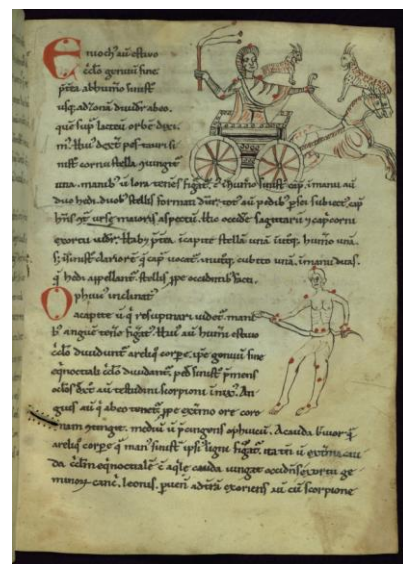 Enioch' aū estivo
c̄clo genuū sine
p̄ta abhumo sinist̄
usq; adzonā dividit' abeo.
quē sup̄ lacteū orbē dixi
m'. Hui' dext' pes tauri si
nist' cornu stella ꝯiungit
una. manib' ū lora tenēs figit'. ī humo sinist' cap̄. ī manu aū
duo hedi. duob' stellis formati tot' aū pedib' p̄sei subiect'. cap̄
hn̄s ursę maioris aspectū. Iste occidēs sagittarii ⁊ capicorni
exortu vidēt'. Habȝ p̄ta. ī capite stellā unā. ī utq; humo unā.
S; ī sinist' clariorē q̄ cap̄ vocat'. ī utq; cubito unā. ī manu duas.
q̄ hedi appellant'. stellis ꝓpe occidentib' facti.
Ophiuc' inclinat'
acapite ū q̄ resupinari videt'. manī
b' anguē tenēs figit'. Hui' aū humi estivo
c̄clo dividunt' areliq̄ corpe. ipe genuū sine
eqnoctiali c̄clo dividit'. pedē sinist̄ p̄mens
oclos dext' aū testudini scorpioni īnix'. An
guis aū q̄ abeo tenet' ꝓpe ext̄mo ore coro
nam ꝯtingit. mediū ū p̄cingens ophiucū. Acauda brevior q̄
areliq̄ corpe q̄ man' sinist̄ ipsi' ligni figit'. ita tn̄ ū ext̄ma cau
da c̄clm eqnoctialē c̄ aq̄le cauda iungat occidēs exortu ge
minoꝝ canc̄. leonis. ꝑveni adext̄a exoriens aū cū scorpione